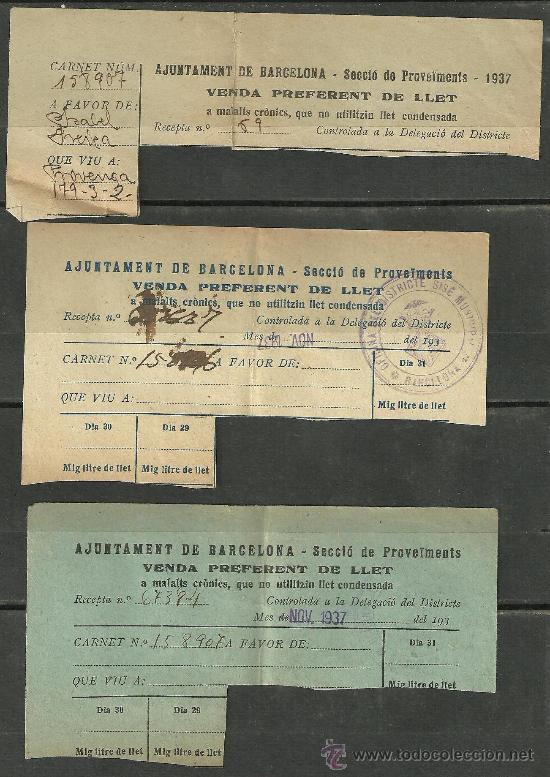 CARNET NÚM.
158907
A FAVOR DE:
Isabel
QUE VIU A:
Provença
179-3-2-
AJUNTAMENT DE BARCELONA - Secció de Proveïments - 1937
VENDA PREFERENT DE LLET
a malalts crònics, que no utilitzin llet condensada
Recepta n.º 69 Controlada a la Delegació del Districte
AJUNTAMENT DE BARCELONA - Secció de Proveïments
VENDA PREFERENT DE LLET
a malalts crònics, que no utilitzin llet condensada
Recepta n.º Controlada a la Delegació del Districte
Mes de NOV 1937 del 193
CARNET N.º A FAVOR DE:
Dia 31
QUE VIU A:
DISTRICTE SISÈ
BARCELONA
Dia 30 Dia 29
Mig litre de llet Mig litre de llet Mig litre de llet
AJUNTAMENT DE BARCELONA - Secció de Proveïments
VENDA PREFERENT DE LLET
a malalts crònics, que no utilitzin llet condensada
Recepta n.º 67384 Controlada a la Delegació del Districte
Mes de NOV. 1937 del 193
CARNET N.º 158907 A FAVOR DE:
Dia 31
QUE VIU A:
Mig litre de llet
Dia 30 Dia 29
Mig litre de llet Mig litre de llet
todocoleccion
www.todocoleccion.net